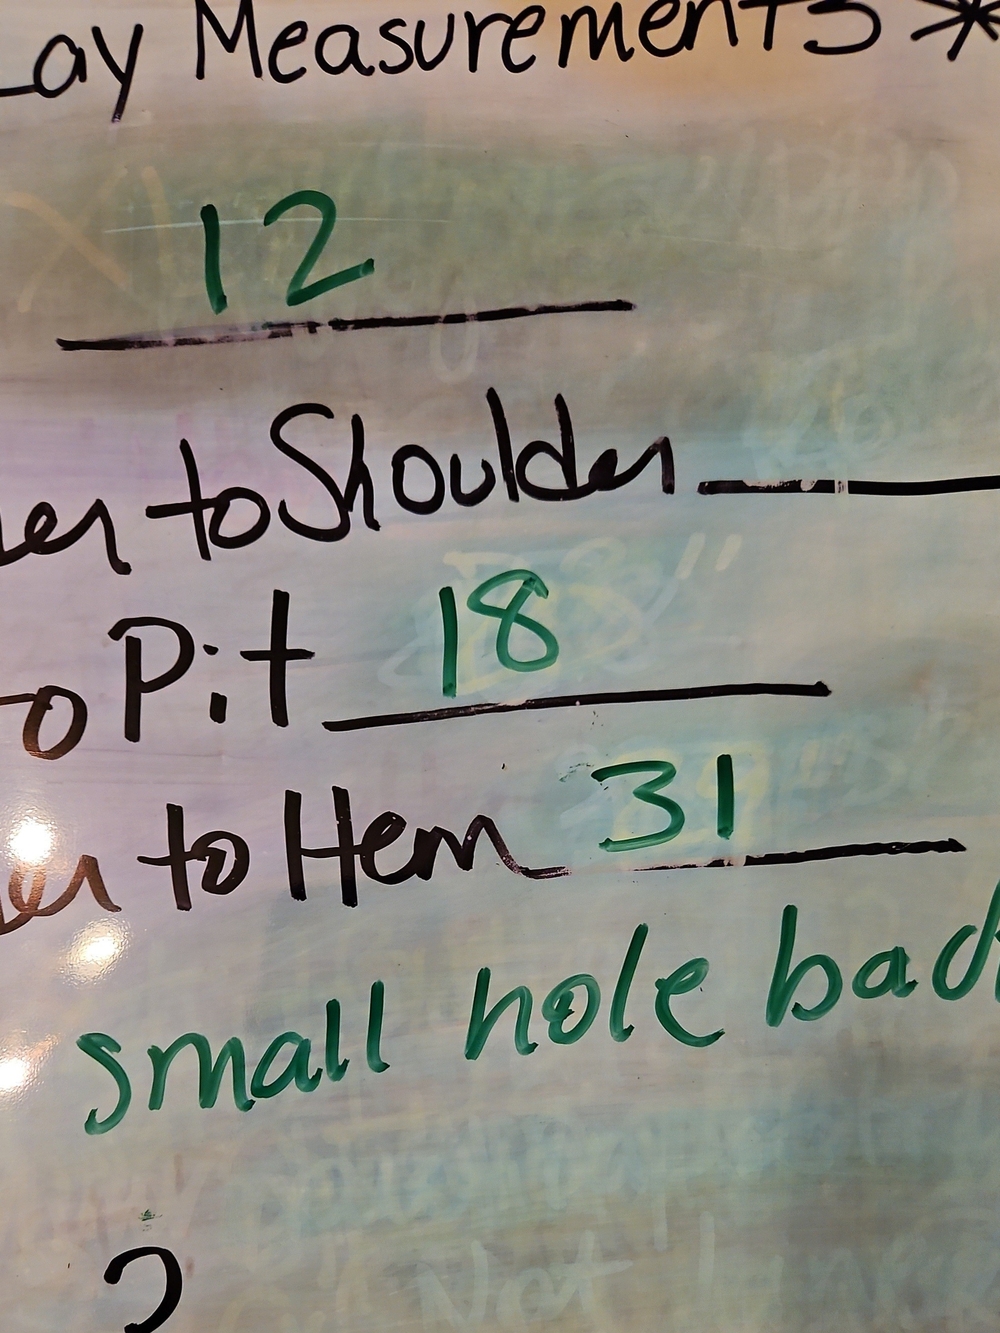 Lay Measurements *
12
er to Shoulder
to Pit 18
er to Hem 31
small hole back
?